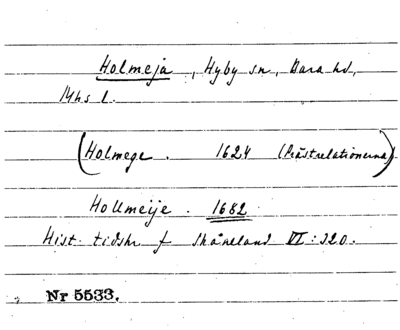 Holmeja, Hyby sn, Bara hd,
Mhs l.
(Holmege. 1624 (Prästrelationerna)
Hollmeije. 1682
Hist. tidskr f Skåneland VI:320.
Nr 5533.